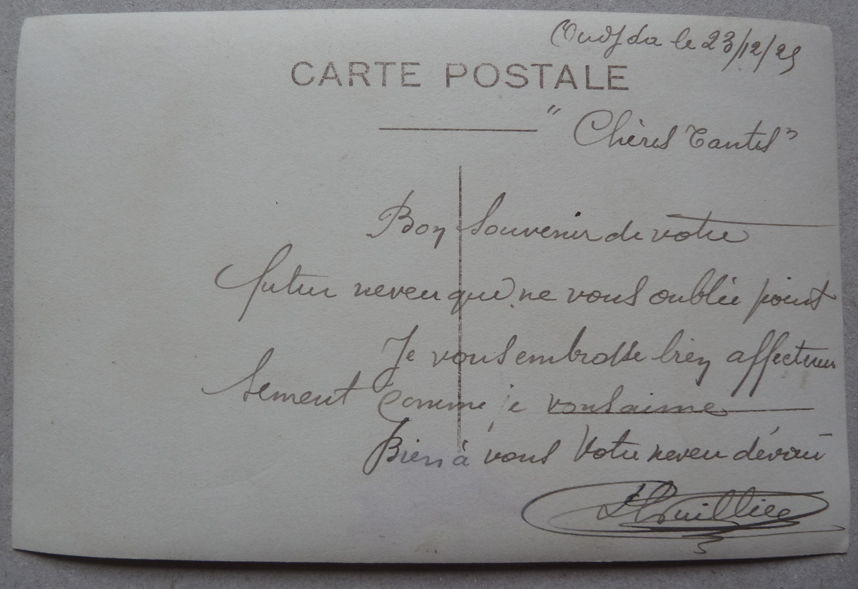 Oudjda le 23/12/25
CARTE POSTALE
" Chères tantes "
Bon Souvenir de votre
futur neveu qui ne vous oublie point
Je vous embrasse bien affectueu
sement comme je vous aime
Bien à vous Votre neveu dévoué